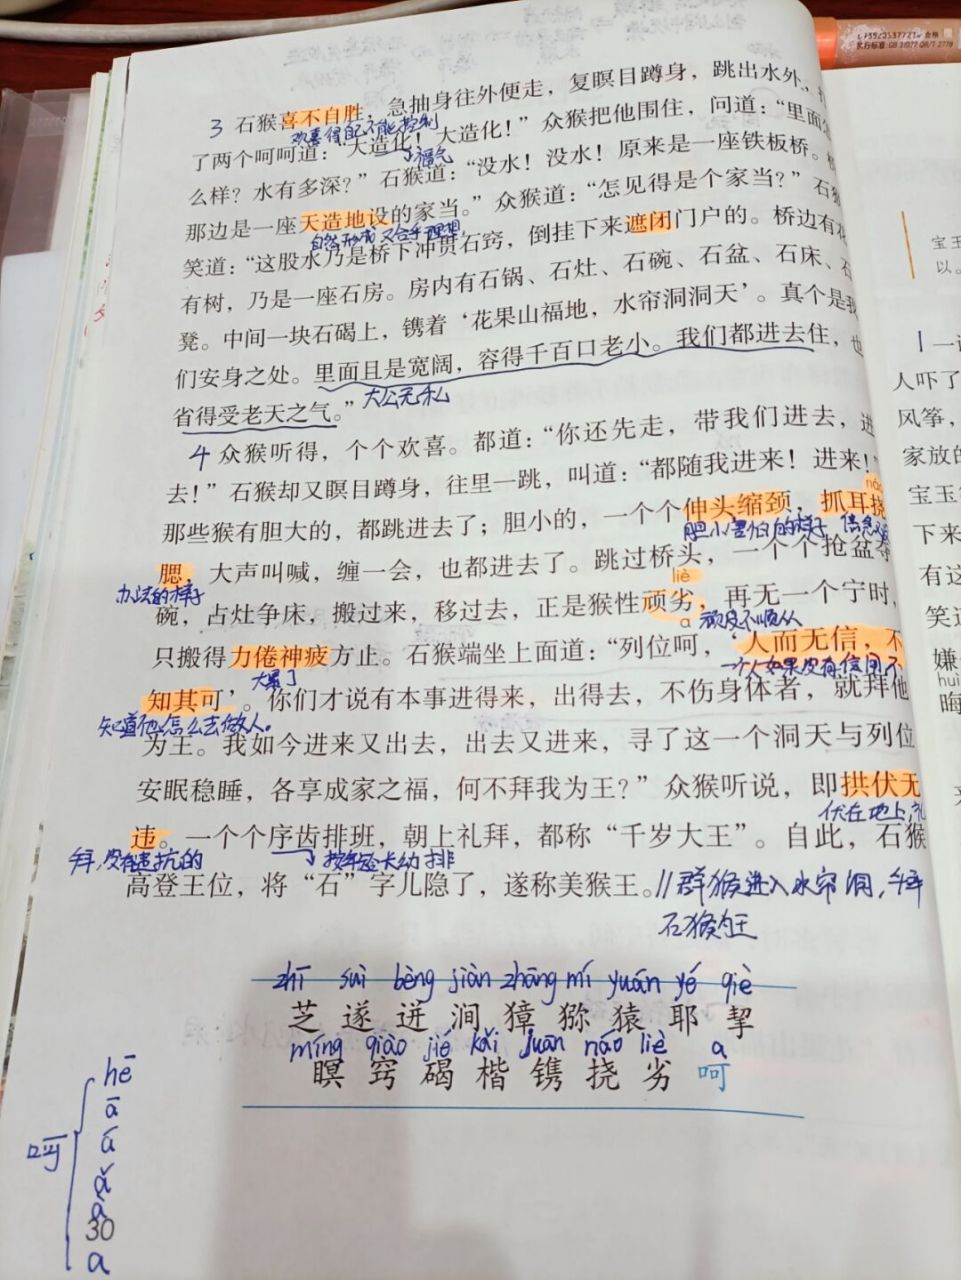 3 石猴喜不自胜，急抽身往外便走，复瞑目蹲身，跳出水外，打
欢喜得自己不能控制
了两个呵呵道：“大造化！大造化！”众猴把他围住，问道：“里面怎
福气
么样？水有多深？”石猴道：“没水！没水！原来是一座铁板桥。桥
那边是一座天造地设的家当。”众猴道：“怎见得是个家当？”石猴
自然形成又合乎理想
笑道：“这股水乃是桥下冲贯石窍，倒挂下来遮闭门户的。桥边有花
有树，乃是一座石房。房内有石锅、石灶、石碗、石盆、石床、石
凳。中间一块石碣上，镌着‘花果山福地，水帘洞洞天’。真个是我
们安身之处。里面且是宽阔，容得千百口老小。我们都进去住，也
省得受老天之气。”
大公无私
4 众猴听得，个个欢喜。都道：“你还先走，带我们进去，进
去！”石猴却又瞑目蹲身，往里一跳，叫道：“都随我进来！进来！”
náo
那些猴有胆大的，都跳进去了；胆小的，一个个伸头缩颈，抓耳挠
胆小害怕的样子
腮，大声叫喊，缠一会，也都进去了。跳过桥头，一个个抢盆夺
办法的样子
liè
碗，占灶争床，搬过来，移过去，正是猴性顽劣，再无一个宁时，
a 顽皮不顺从
只搬得力倦神疲方止。石猴端坐上面道：“列位呵，‘人而无信，不
太累了
一个人如果没有信用不
知其可’。你们才说有本事进得来，出得去，不伤身体者，就拜他
知道他怎么去做人。
为王。我如今进来又出去，出去又进来，寻了这一个洞天与列位
安眠稳睡，各享成家之福，何不拜我为王？”众猴听说，即拱伏无
伏在地上，礼
违。一个个序齿排班，朝上礼拜，都称“千岁大王”。自此，石猴
拜，没有违抗的
按年龄长幼排
高登王位，将“石”字儿隐了，遂称美猴王。//群猴进入水帘洞，拜
石猴为王
zhī suì bèng jiàn zhāng mí yuán yé qiè
芝 遂 迸 涧 獐 猕 猿 耶 挈
míng qiào jié kǎi juān náo liè a
瞑 窍 碣 楷 镌 挠 劣 呵
呵
hē
ā
á
ǎ
à
a
30
宝玉
以。
1 一语
人吓了
风筝，
家放的
宝玉
下来
有这
笑道
嫌
huì
晦